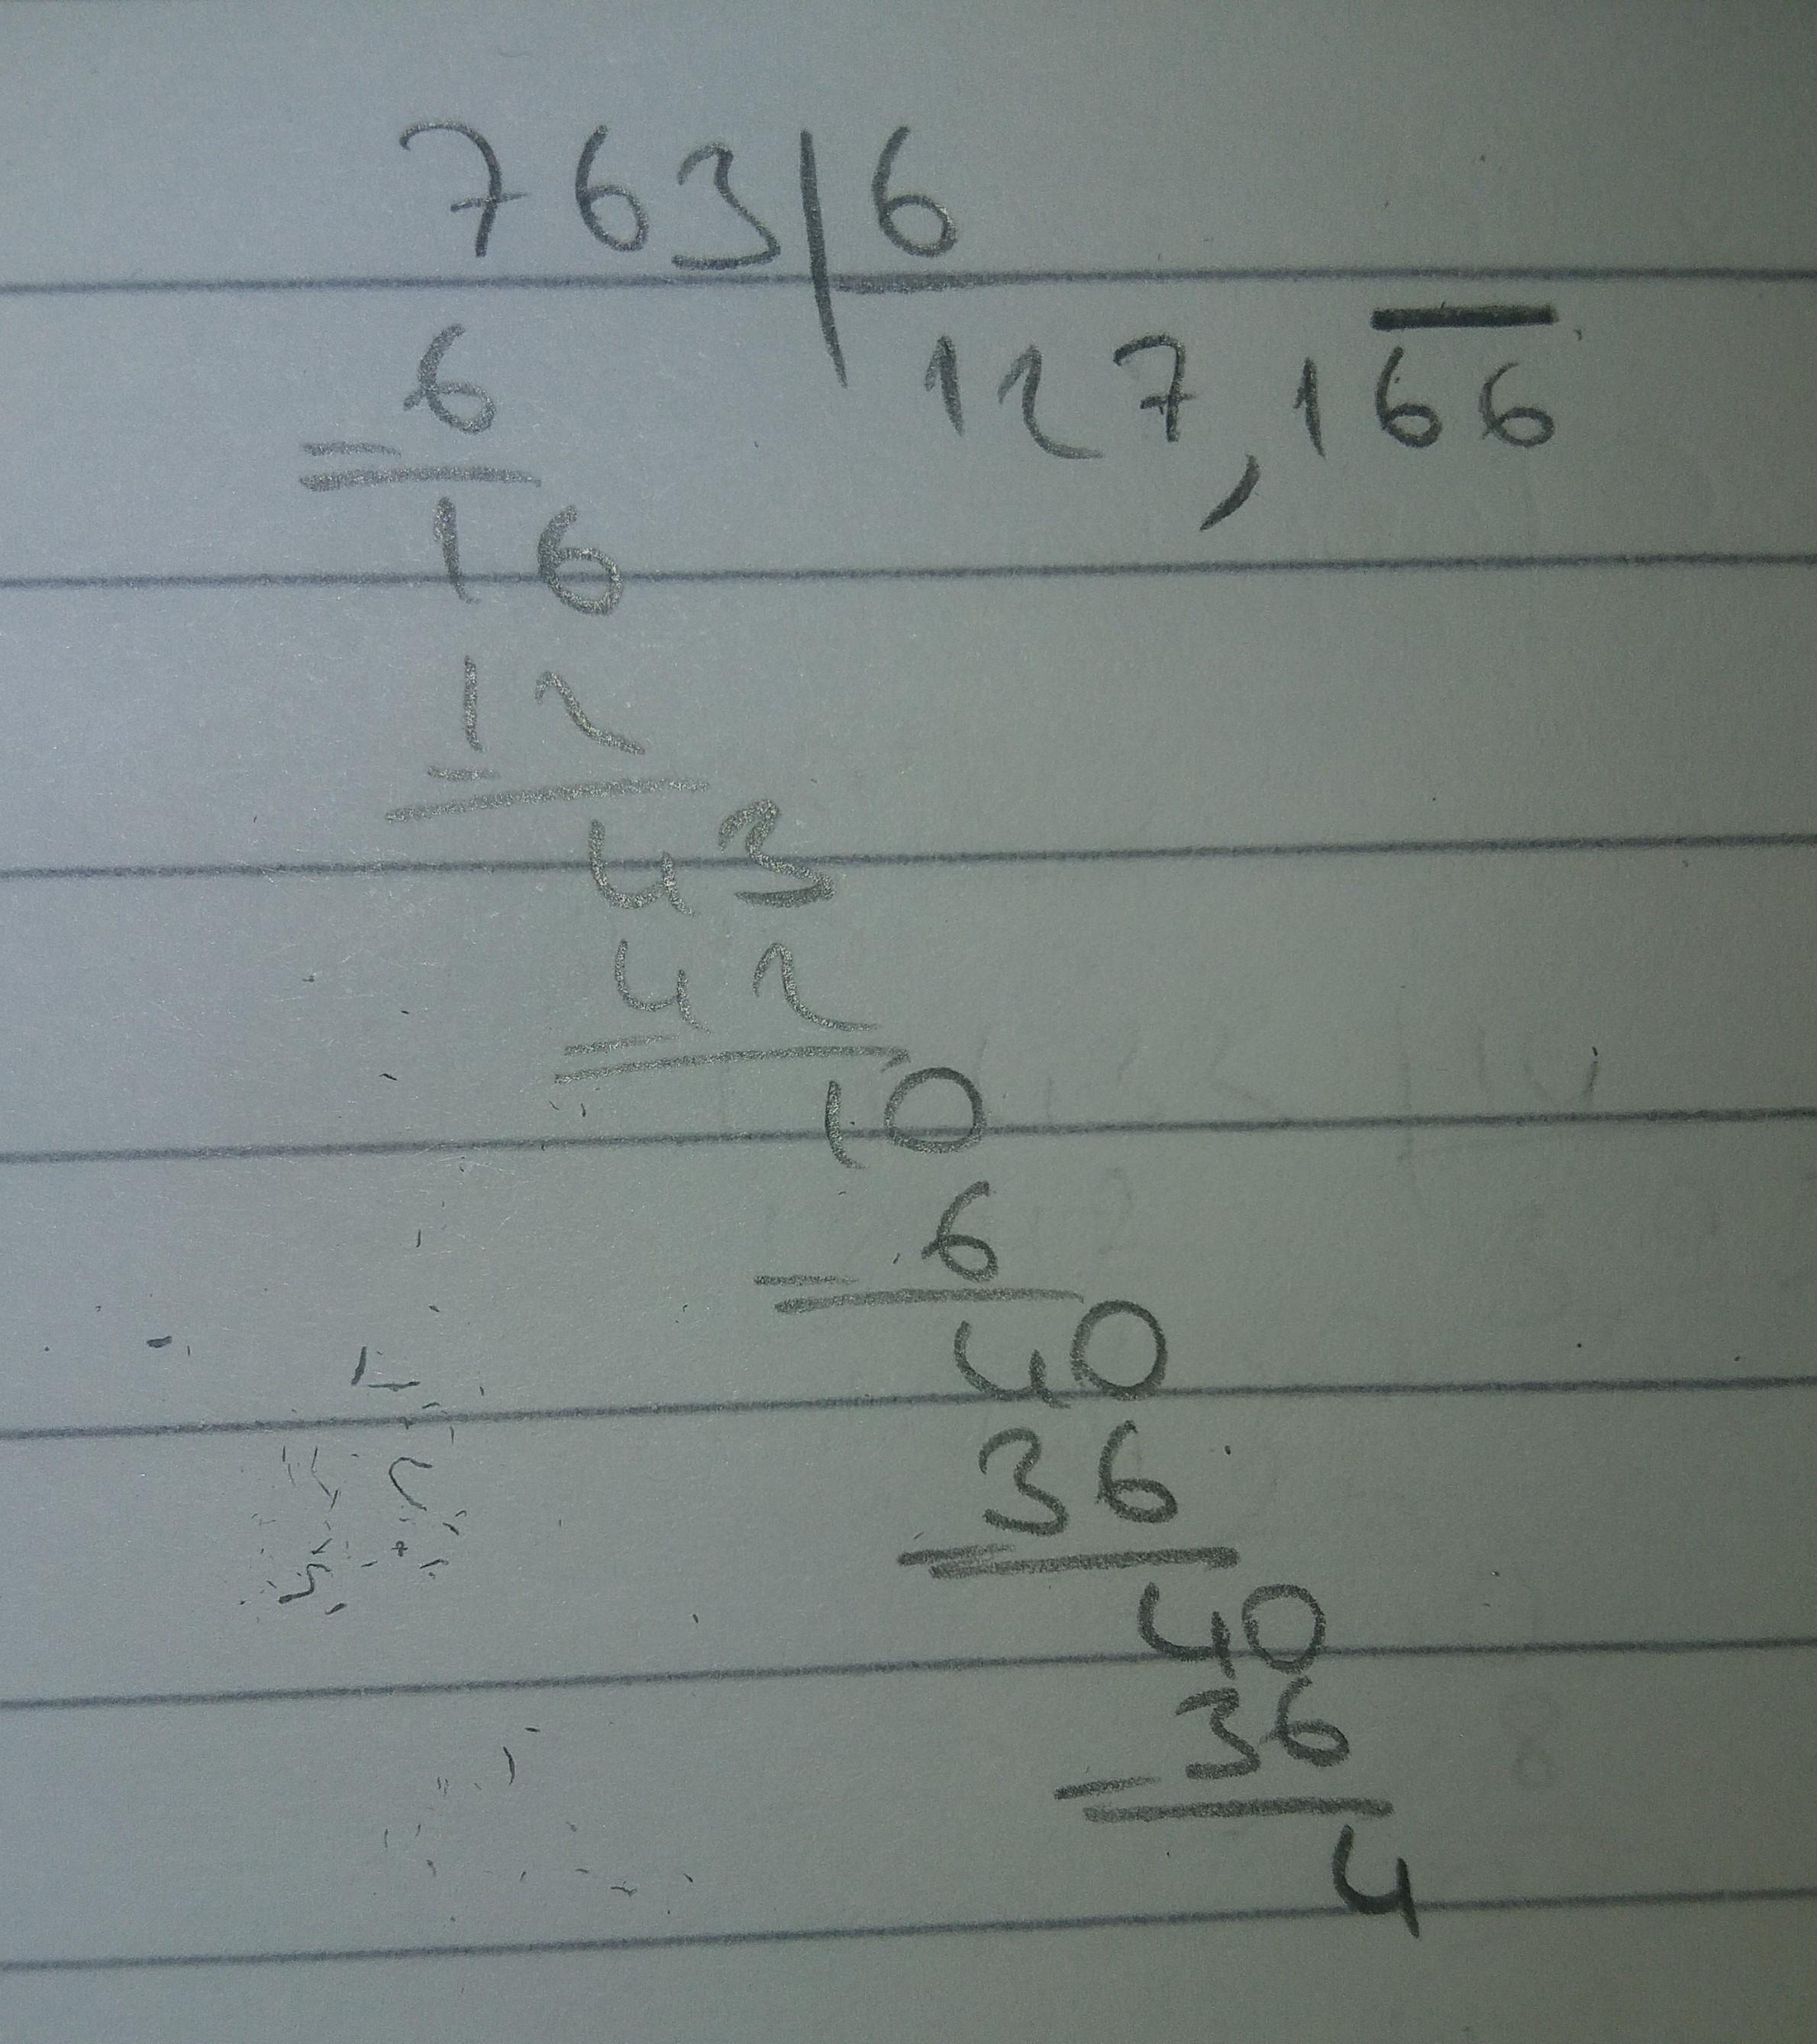 763|6
6 127,166
16
12
43
42
10
6
40
36
40
36
4